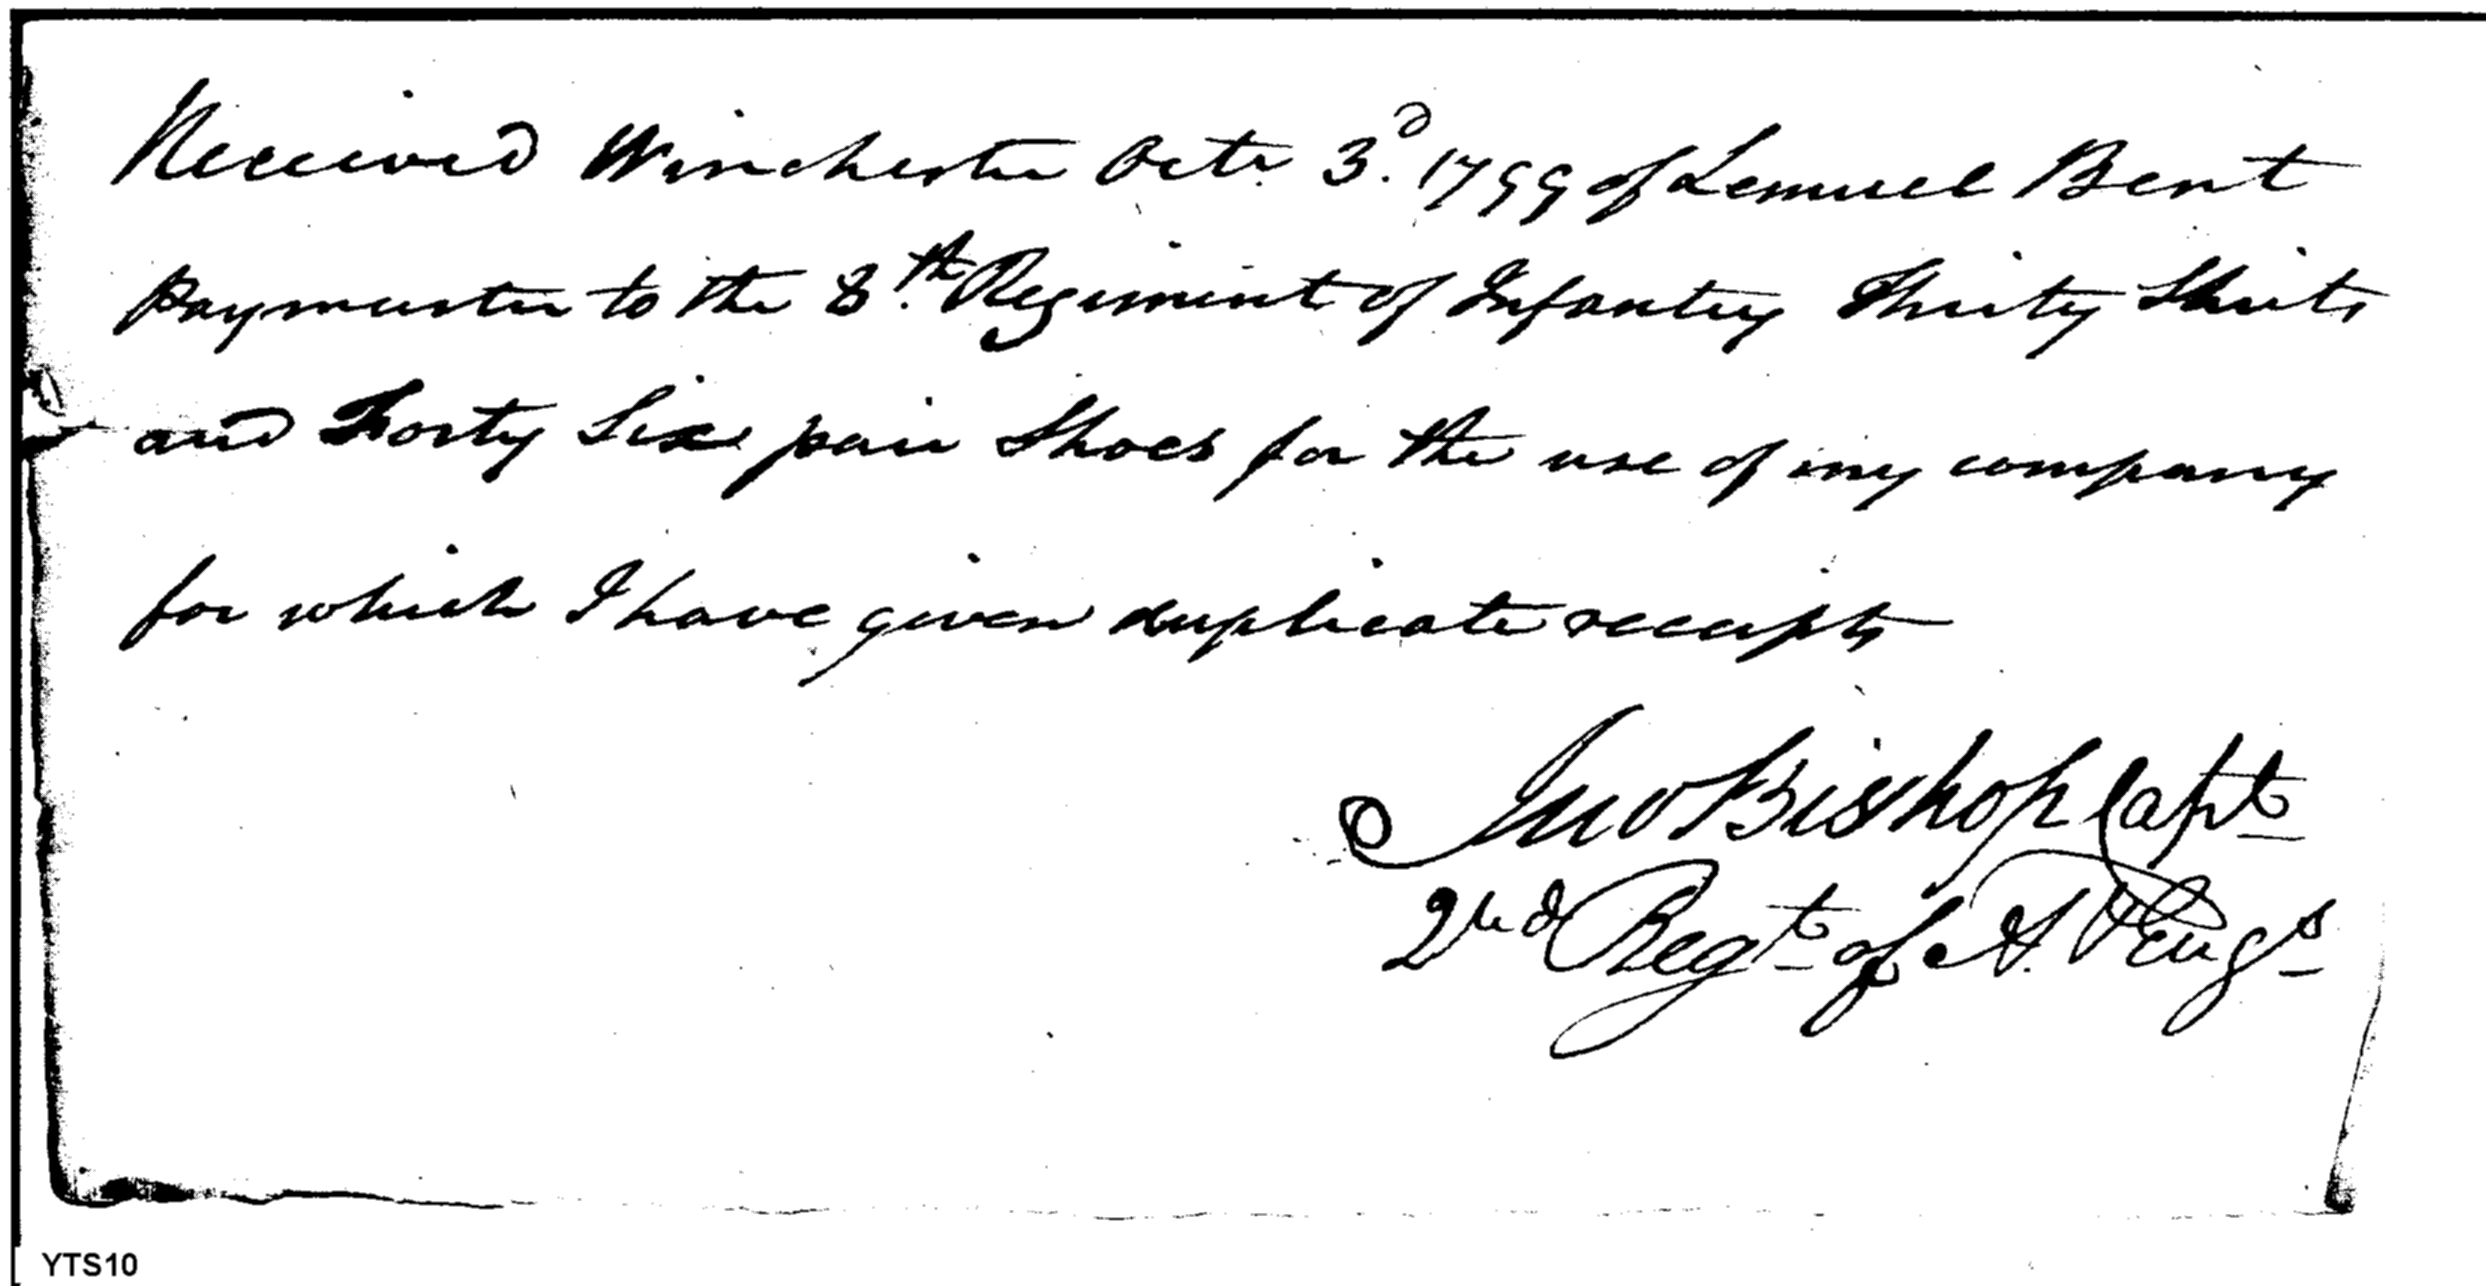 Received Winchester Octr. 3.d 1799 of Lemuel Bent
paymaster to the 8.th Regiment of Infantry Thirty Shirts
and Forty Six pair Shoes for the use of my company
for which I have given duplicate receipts
Jno Bishop Capt
2nd Regt of A. & Engs
YTS10